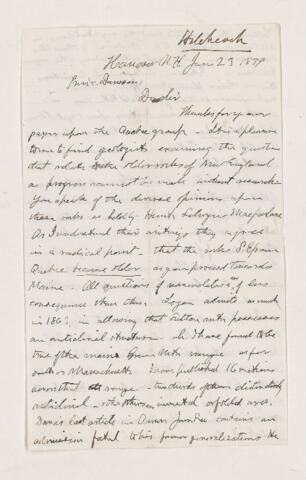 Hitchcock
Hanover N.H. Jan 23 1879
Prin. Dawson,
Dear Sir
Thanks for your
paper upon the Quebec group - It is a pleasure
to me to find geologists examining the questions
that relate to the older rocks of New England
as progress cannot be made without research
You speak of the diverse opinions upon
these rocks as held by Hunt, Selwyn & Macfarlane
As I understand their writings they agree
in a radical point - that the rocks S.E. from
Quebec become older as you proceed towards
Maine - All questions of nomenclature are of less
consequence than this. Logan admits as much
in 1863, in allowing that Sutton Mts possesses
an anticlinal structure. So I have found to be
true of the main Green Mtn range as far
south as Massachusetts I have published 16 sections
across that range - two thirds of them distinctly
anticlinal - the others inverted or folded axes.
Dana's last article in Amer. Jour. Sci contains an
admission fatal to his former generalizations He